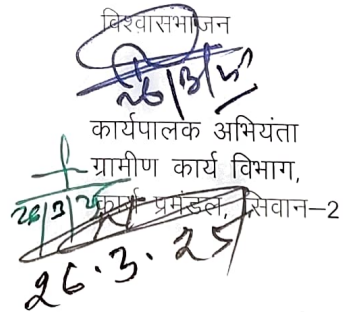 विश्वासभाजन
26/3/25
कार्यपालक अभियंता
ग्रामीण कार्य विभाग,
26/3/25
कार्य प्रमंडल, सिवान–2
26.3.25